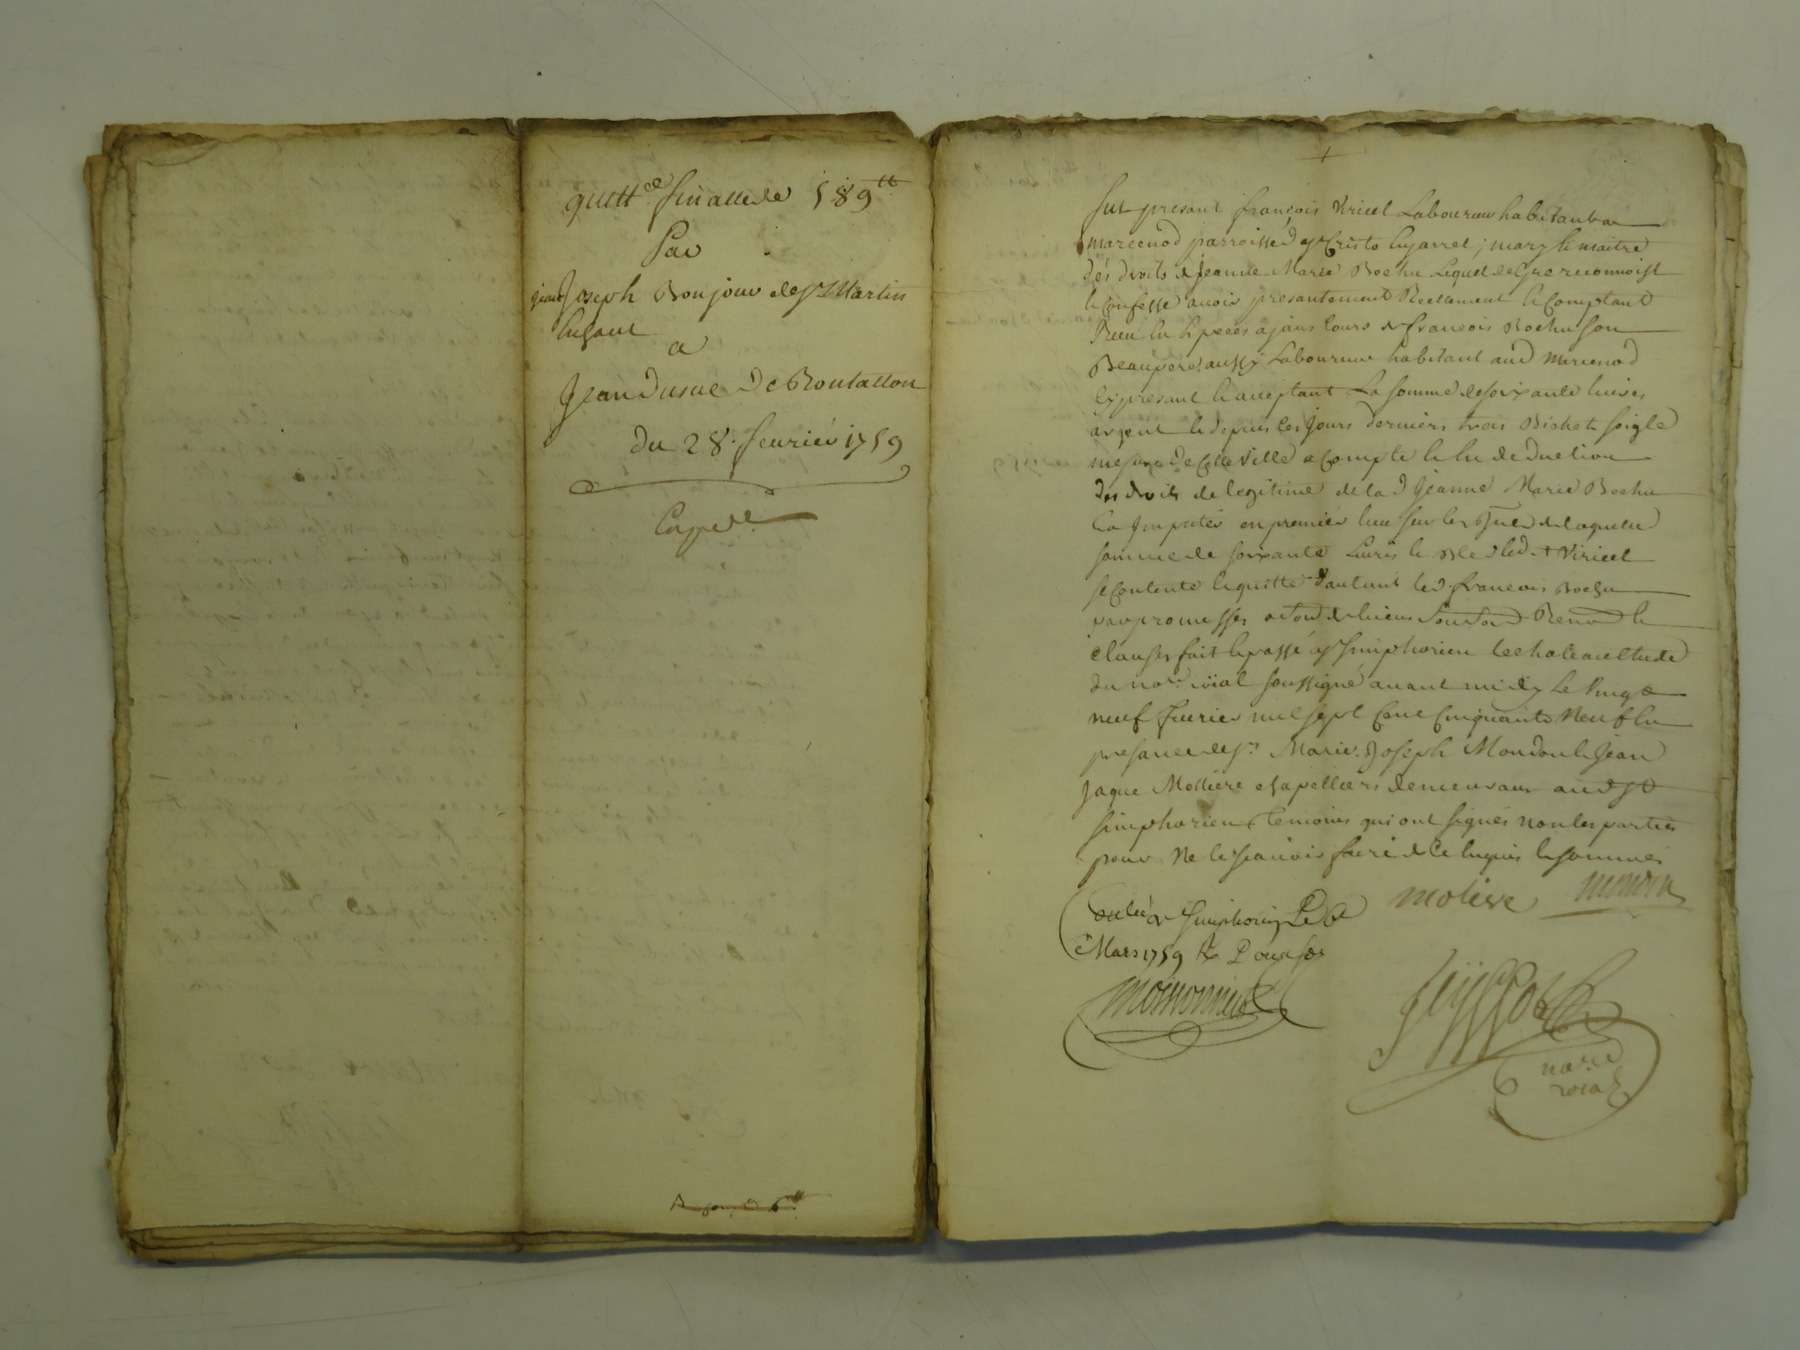 quitt.ce finalle de 589 tt
Par
Jean Joseph Bonjour de St Martin
a
Jean Dusuc De Rontallon
Du 28. feurier 1759
Exped.
fut presant françois Viricel Laboureur habitant a
marcenod parroisse de st Cristo en jarret, mary le maitre
des droits de Jeanne Marie Bochu Lequel de Gre reconnoist
le confesse auoir presantement Reellement le Comptant
Receu en Especes ayans cours de francois Bochu son
Beaupere aussy Laboureur habitant aud marcenod
icy presant le aceptant La somme de soixante liures
argent le depuis les Jours derniers trois Bichets soigle
mesure de Cette Ville a Compte le en deduction
des droits de legitime de la d Jeanne Marie Bochu
En Imputer en premier lieu sur les de laquelle
somme de soixante Liures le Bled led. Viricel
se Contente le quitte d'autant led. francois Bochu
par promesses Renond le
clauses fait le passé a st simphorien le chateau Etude
du no.re roial soussigné auant midy Le Vingt
neuf feurier mil sept Cent Cinquante Neuf En
presance de sr Marie Joseph Mondon le Jean
Jaque Moliere chapelliers demeurans aud st
simphorien temoins qui ont signés non les parties
pour Ne le scauoir faire de Ce enquis le sommés
moliere mondon
Conlé a st simphorien Le
Mars 1759 R. douze sols
no.re
roial